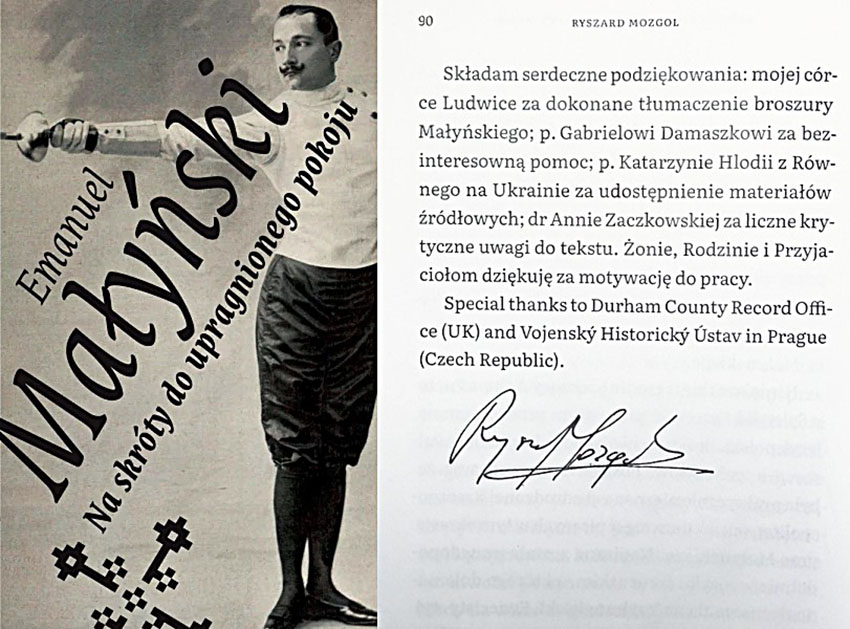 Emanuel
Małyński
Na skróty do upragnionego pokoju
90
RYSZARD MOZGOL
Składam serdeczne podziękowania: mojej cór-
ce Ludwice za dokonane tłumaczenie broszury
Małyńskiego; p. Gabrielowi Damaszkowi za bez-
interesowną pomoc; p. Katarzynie Hlodii z Rów-
nego na Ukrainie za udostępnienie materiałów
źródłowych; dr Annie Zaczkowskiej za liczne kry-
tyczne uwagi do tekstu. Żonie, Rodzinie i Przyja-
ciołom dziękuję za motywację do pracy.
Special thanks to Durham County Record Offi-
ce (UK) and Vojenský Historický Ústav in Prague
(Czech Republic).